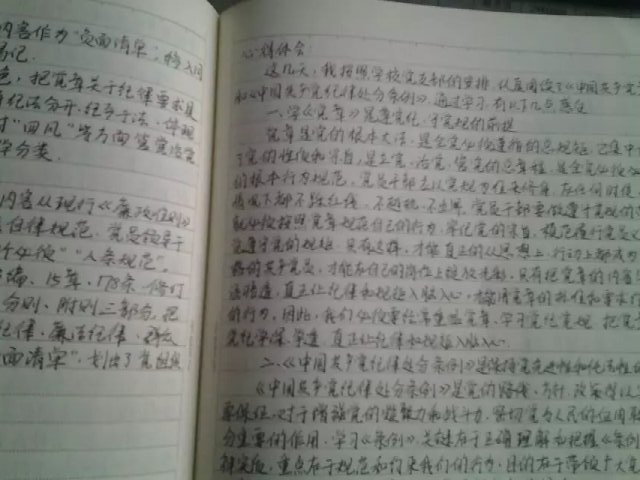 内容作为"负面清单",移入同
色,把党章关于纪律要求具
纪法分开,纪严于法,体现
对"四风"等方面
学分类.
内容从现行《廉政准则》
自律规范.党员领导干
"八条规范".
编、15章、178条.修订
分则、附则三部分.把
纪律、廉洁纪律、群众
面清单",划出了党组织
心得体会:
这几天,我按照学校党支部的安排,认真阅读了《中国共产党
和《中国共产党纪律处分条例》.通过学习,有以下几点感受
一、学《党章》是遵党纪、守党规的前提
党章是党的根本大法,是全党必须遵循的总规矩.它集中
了党的性质和宗旨,是立党、治党、管党的总章程,是全党必须
的根本行为规范.党员干部在任何时候
情况下都不踩红线、不越轨、不出界.党员干部要做遵守党规的
必须按照党章规范自己的行为,牢记党的宗旨,模范履行党员义
觉遵守党的规矩.只有这样,才能真正的从思想上、行动上都成为
格的共产党员,才能在自己的岗位上.只有把党章的内容
真正让纪律和规矩入脑入心,才能用党章的标准和要求
的行为.因此,我们必须要经常重温党章、学习党纪党规,把党章
党纪学深、学透,真正让纪律和规矩入脑入心.
二、《中国共产党纪律处分条例》是保持党先进性和纯洁性的
《中国共产党纪律处分条例》是党的路线、方针、政策得以
要保证,对于增强党的凝聚力和战斗力,密切党与人民的血肉
分重要的作用.学习《条例》,关键在于正确理解和把握《条例》
神实质,重点在于规范和约束我们的行为,目的在于带领广大党